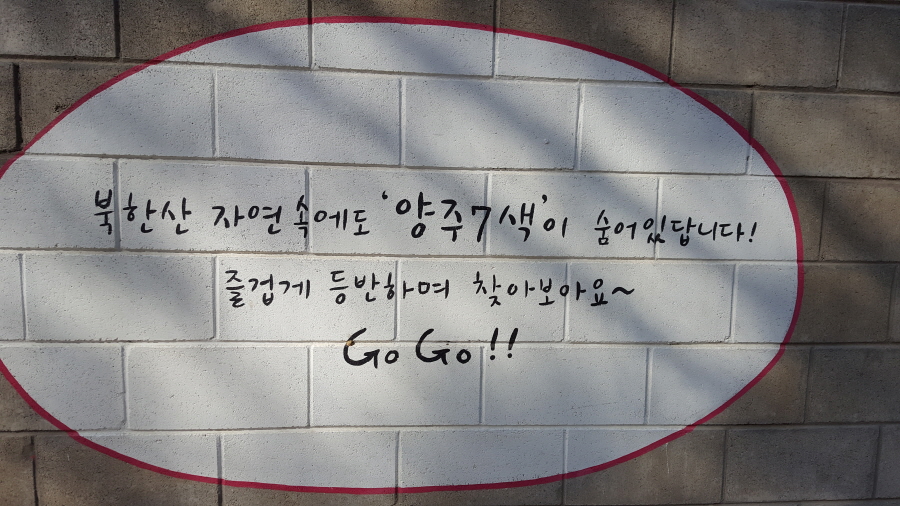 북한산 자연속에도 '양주7색'이 숨어있답니다!
즐겁게 등반하며 찾아보아요~
Go Go!!